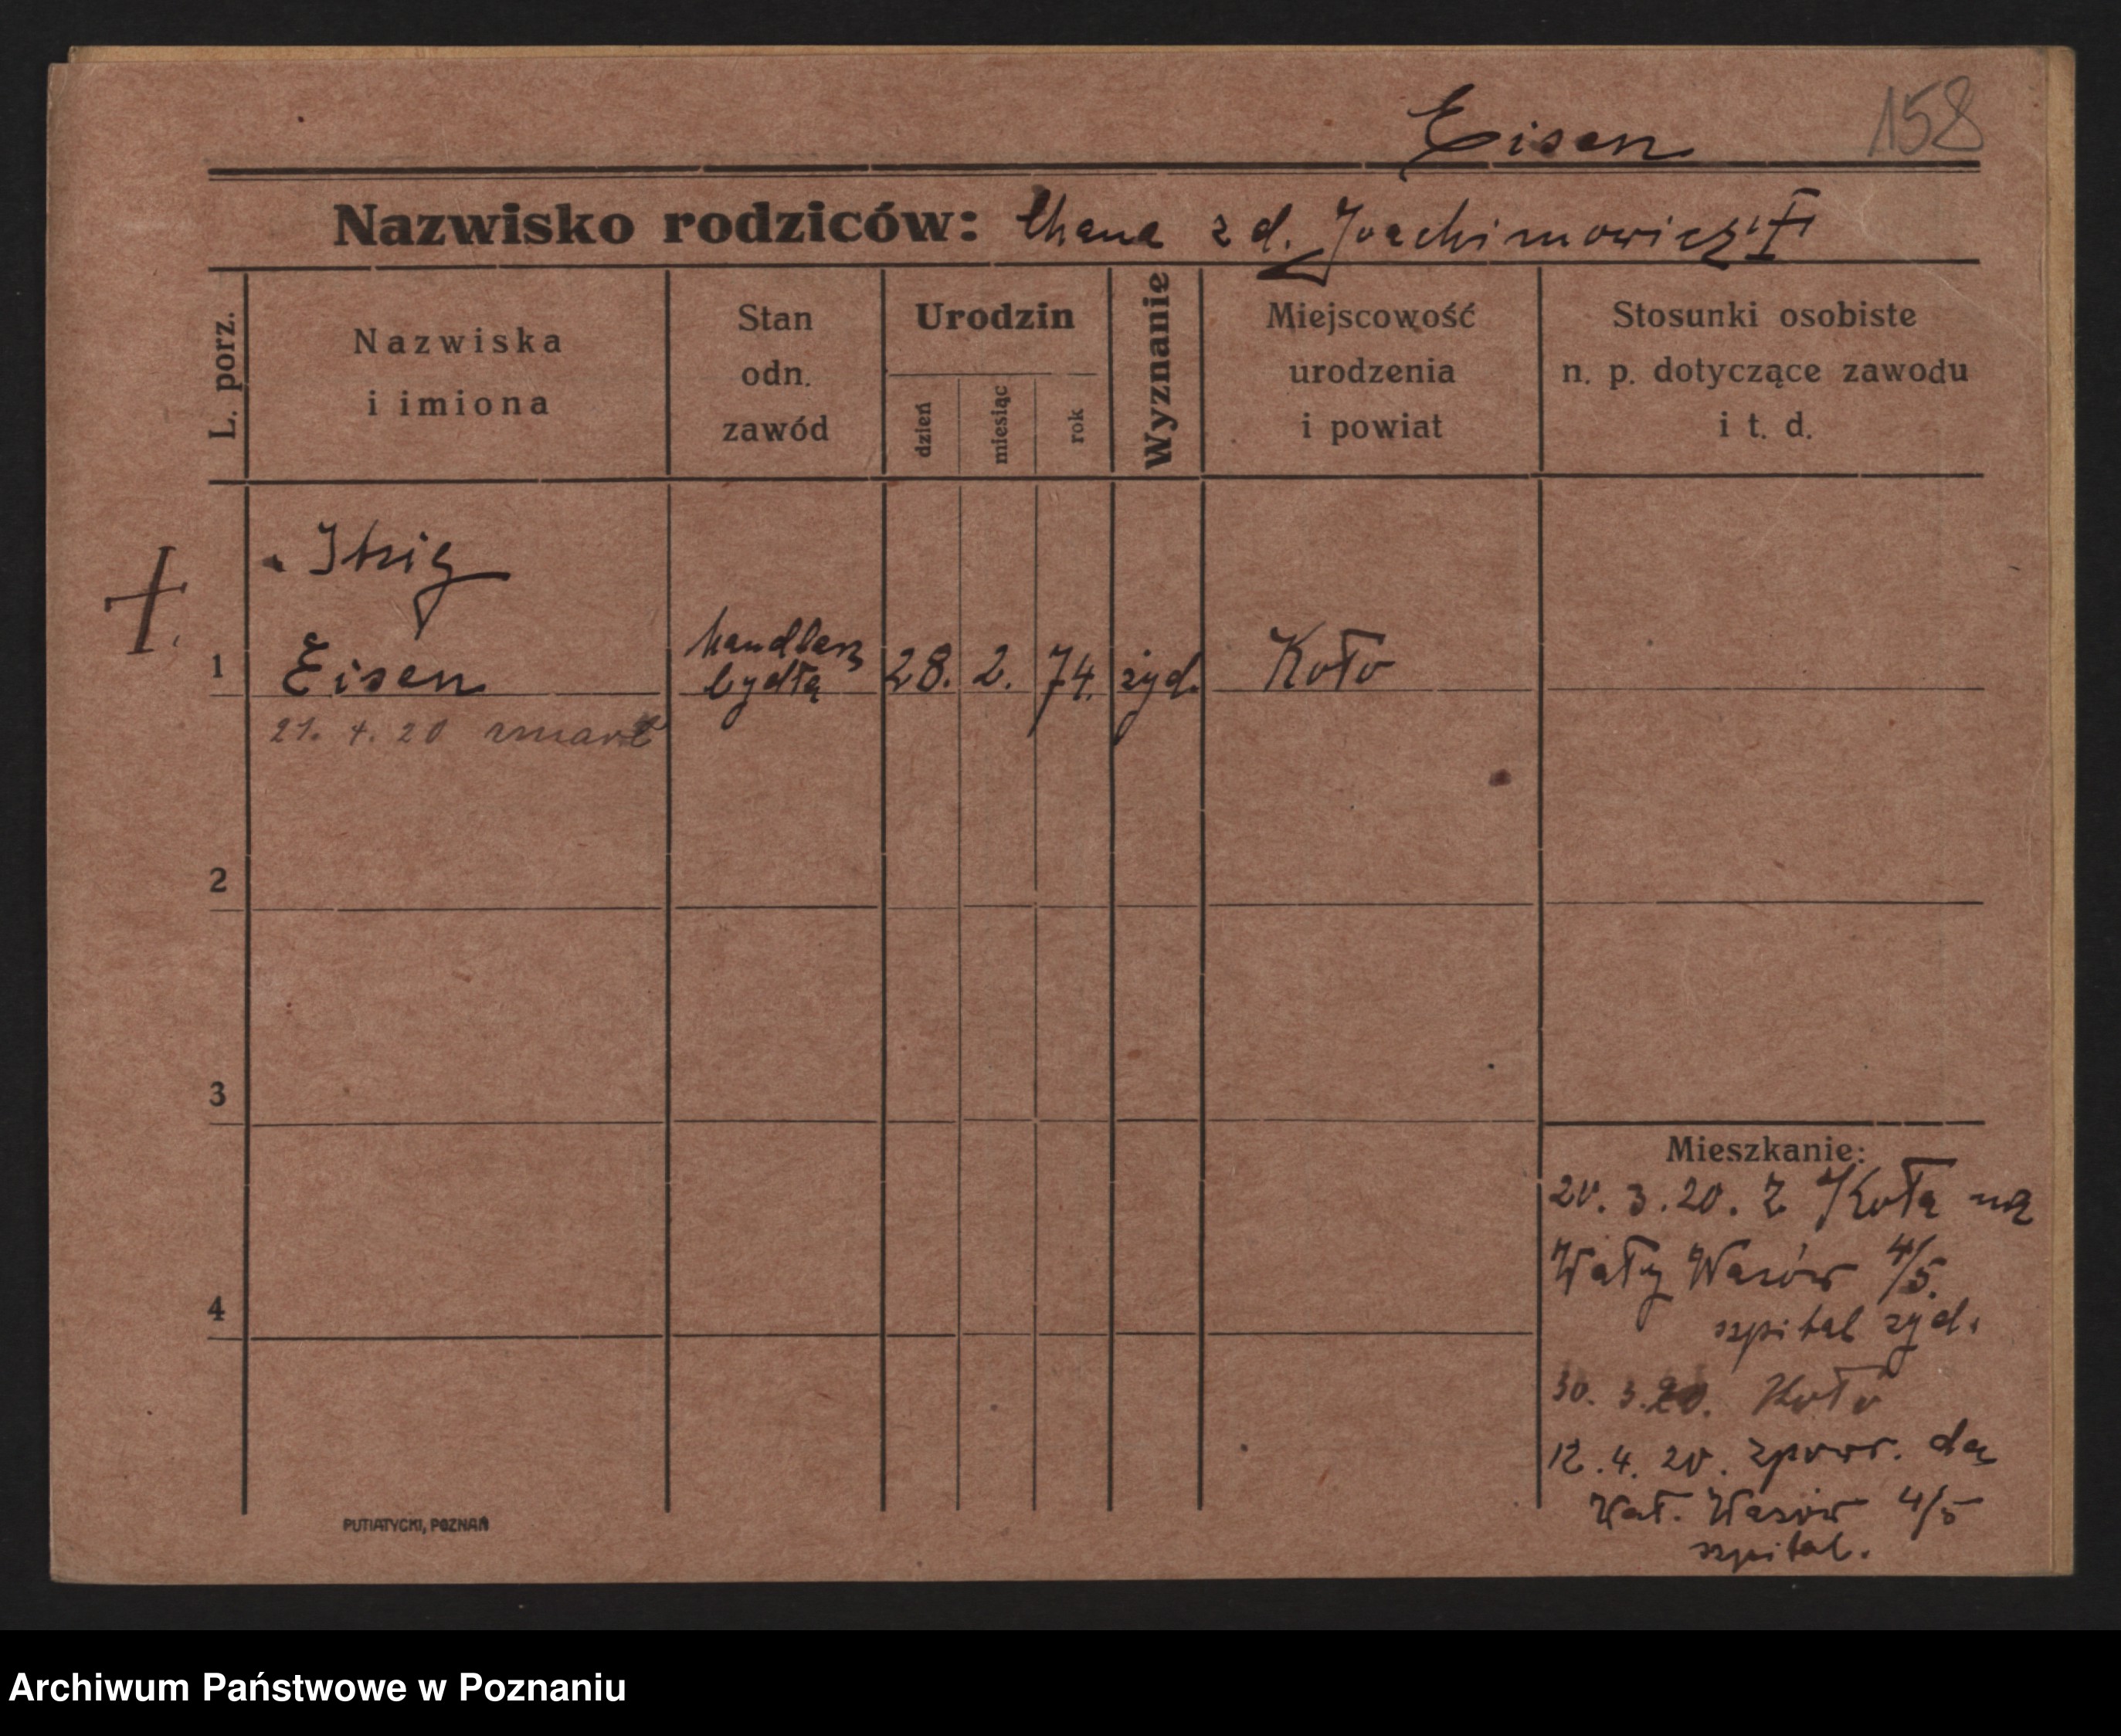 Eisen 158
Nazwisko rodziców: Chana z d. Joachimowicz
L. porz.
Nazwiska
i imiona
Stan
odn.
zawód
Urodzin
dzień
miesiąc
rok
Wyznanie
Miejscowość
urodzenia
i powiat
Stosunki osobiste
n. p. dotyczące zawodu
i t. d.
Itzig
1 Eisen handlarz bydła 28. 2. 74. żyd. Koło
21. 4. 20 zmarł
2
3
4
Mieszkanie:
20. 3. 20. z Koła na
Wały Wazów 4/5.
szpital żyd.
30. 3. 20. Koło
12. 4. 20. zpowr. do
Wał. Wazów 4/5
szpital.
PUTIATYCKI, POZNAŃ
Archiwum Państwowe w Poznaniu